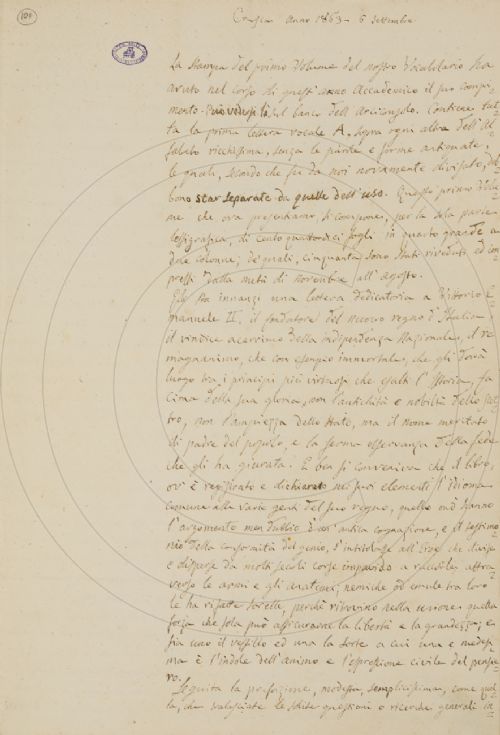 101
Crusca Anno 1863 - 6 settembre
La stampa del primo Volume del nostro Vocabolario ha
avuto nel corso di quest'anno Accademico il suo compi-
mento. Può vedersi là, sul banco dell'Arciconsolo. Contiene tut-
ta la prima lettera vocale A, sopra ogni altra dell'Al-
fabeto ricchissima, senza le parole e forme antiquate,
le quali, secondo che fu da noi novamente divisato, deb-
bono star separate da quelle dell'uso. Questo primo volu-
me che ora presentiamo si compone, per la sola parte
lessigrafica, di cento quattordici fogli in quarto grande a
due colonne, de' quali, cinquanta sono stati riveduti ed im-
pressi dalla metà di novembre all'agosto.
Gli sta innanzi una lettera dedicatoria a Vittorio E-
manuele II, il fondatore del nuovo regno d'Italia
il vindice acerrimo della independenza Nazionale, il re
magnanimo, che con esempio immortale, che gli darà
luogo tra i principi più virtuosi che esalti l'Istoria, fa
cima della sua gloria, non l'antichità o nobiltà dello scet-
tro, non l'ampiezza dello stato, ma il nome meritato
di padre del popolo, e la ferma osservanza della fede
che gli ha giurata. E ben si conveniva che il libro,
ov'è registrato e dichiarato ne' suoi elementi l'idioma
comune alla varie genti del suo regno, quello ond'hanno
l'argomento men dubbio d'un'antica cognazione, e il testimo-
nio della conformità del genio, s'intitolasse all'Eroe che divise
e disperse da molti secoli corse impavido a raccoglierle attra-
verso le armi e gli
nemiche od emule tra loro
le ha rifatte sorelle, perchè ritrovino nella unione quella
forza che sola può assicurarne la libertà e la grandezza, e
sia uno il vessillo ed una la sorte a cui una e medesi-
ma è l'indole dell'animo e l'espressione civile del pensie-
ro.
Seguita la prefazione, modesta, semplicissima, come quel-
la, che tralasciate le solite questioni o ricerche generali in-